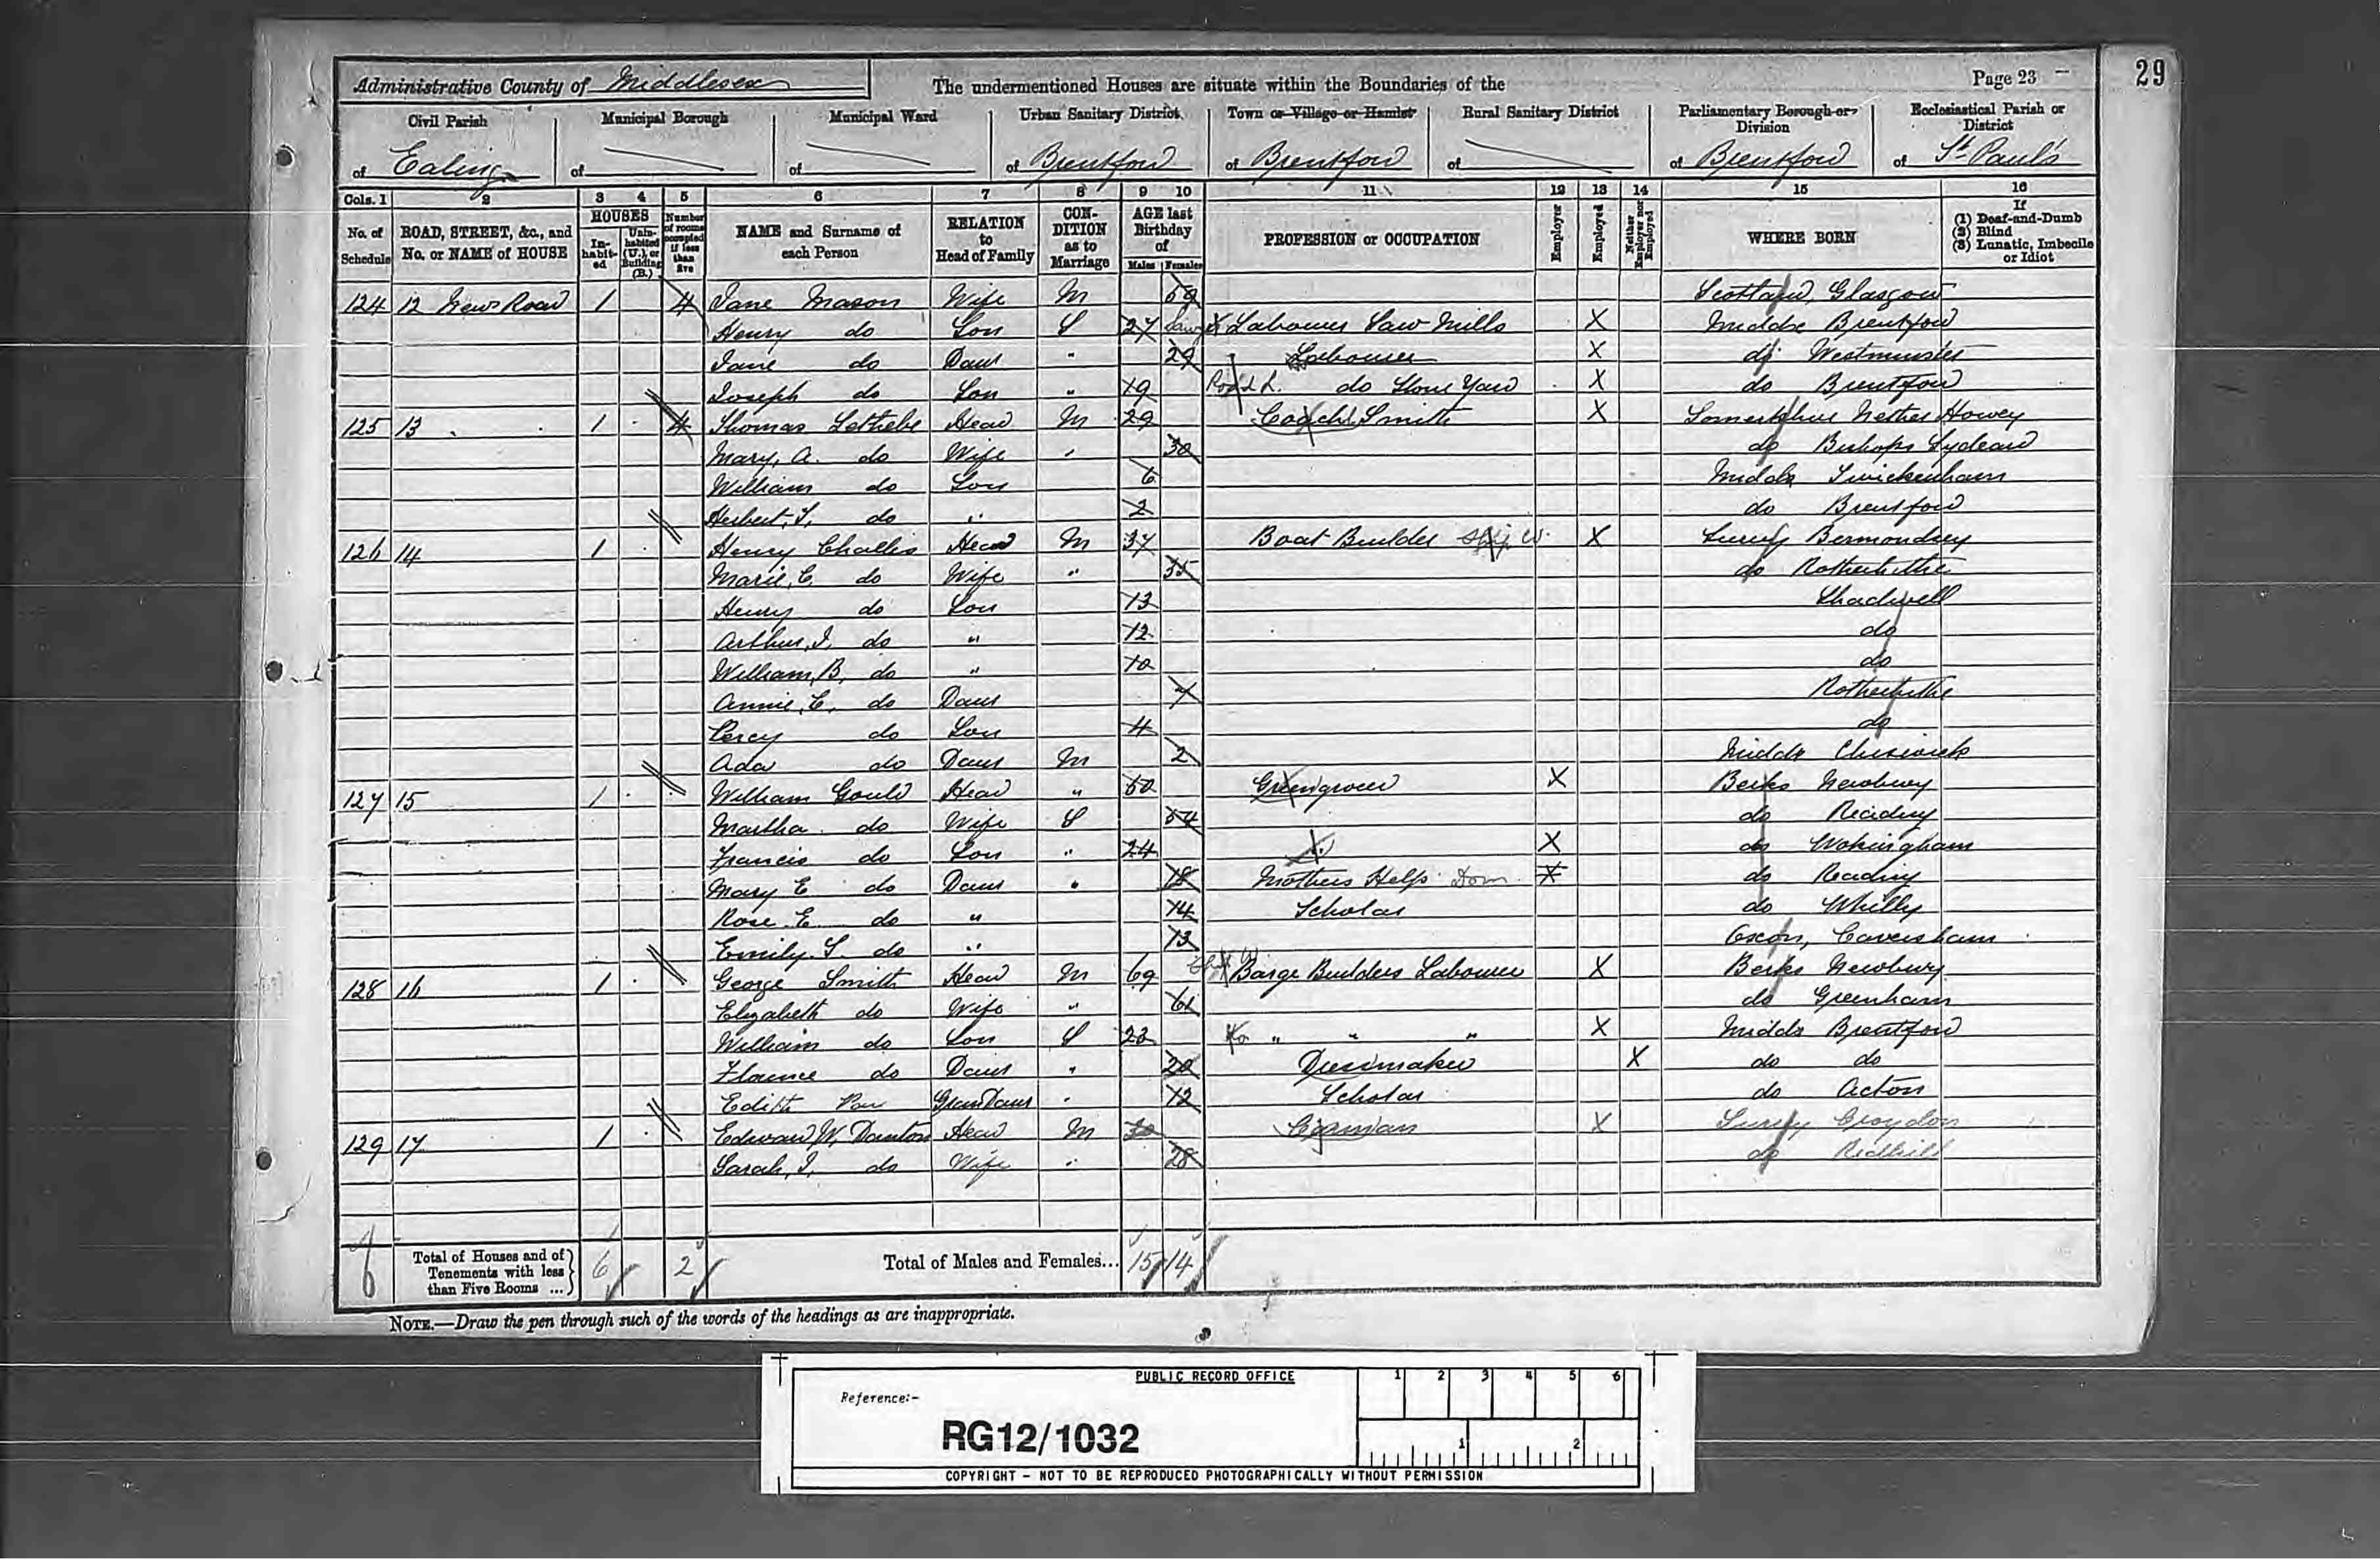 Administrative County of Middlesex
The undermentioned Houses are situate within the Boundaries of the
Page 23
29
Civil Parish
Municipal Borough
Municipal Ward
Urban Sanitary District
Town or Village or Hamlet
Rural Sanitary District
Parliamentary Borough or Division
Ecclesiastical Parish or District
of Ealing
of
of
of Brentford
of Brentford
of
of Brentford
of St Paul's
Cols. 1 2 3 4 5 6 7 8 9 10 11 12 13 14 15 16
No. of Schedule
ROAD, STREET, &c., and No. or NAME of HOUSE
HOUSES
Inhabited
Uninhabited (U.), or Building (B.)
Number of rooms occupied if less than five
NAME and Surname of each Person
RELATION to Head of Family
CONDITION as to Marriage
AGE last Birthday of
Males Females
PROFESSION or OCCUPATION
Employer
Employed
Neither Employer nor Employed
WHERE BORN
If
(1) Deaf-and-Dumb
(2) Blind
(3) Lunatic, Imbecile or Idiot
124 12 New Road 1 4 Jane Mason Wife M 59 Scotland, Glasgow
Henry do Son S 27 Labourer Saw Mills X Middx Brentford
Jane do Daur " 29 Labourer X do Westminster
Joseph do Son " 19 do Stone Yard X do Brentford
125 13 1 4 Thomas Lethebe Head M 29 Coach Smith X Somersetshire Nether Howey
Mary, A. do Wife " 30 do Bishops Lydeard
William do Son 6 Middx Twickenham
Herbert, T. do " 2 do Brentford
126 14 1 Henry Challis Head M 37 Boat Builder Ship W. X Surrey Bermondsey
Marie, C. do Wife " 35 do Rotherhithe
Henry do Son 13 Shadwell
Arthur, J. do " 12 do
William, B. do " 10 do
Annie, C. do Daur 7 Rotherhithe
Percy do Son 4 do
Ada do Daur M 2 Middx Chiswick
127 15 1 William Gould Head " 50 Greengrocer X Berks Newbury
Martha do Wife S 54 do Reading
Francis do Son " 24 X do Wokingham
Mary E do Daur " 18 Mothers Help Dom X do Reading
Rose E. do " 14 Scholar do Whitly
Emily S. do " 13 Oxon, Caversham
128 16 1 George Smith Head M 69 Barge Builders Labourer X Berks Newbury
Elizabeth do Wife " 61 do Greenham
William do Son S 23 do " " " X Midds Brentford
Florence do Daur " 20 Dressmaker X do do
Edith GranDaur " 12 Scholar do Acton
129 17 1 Edward W. Daunton Head M 30 X Surrey Croydon
Sarah, J. do Wife " 28 do Redhill
6
Total of Houses and of Tenements with less than Five Rooms ...
6 2
Total of Males and Females... 15 14
NOTE.—Draw the pen through such of the words of the headings as are inappropriate.
PUBLIC RECORD OFFICE
1 2 3 4 5 6
Reference:-
RG12/1032
1 2
COPYRIGHT - NOT TO BE REPRODUCED PHOTOGRAPHICALLY WITHOUT PERMISSION